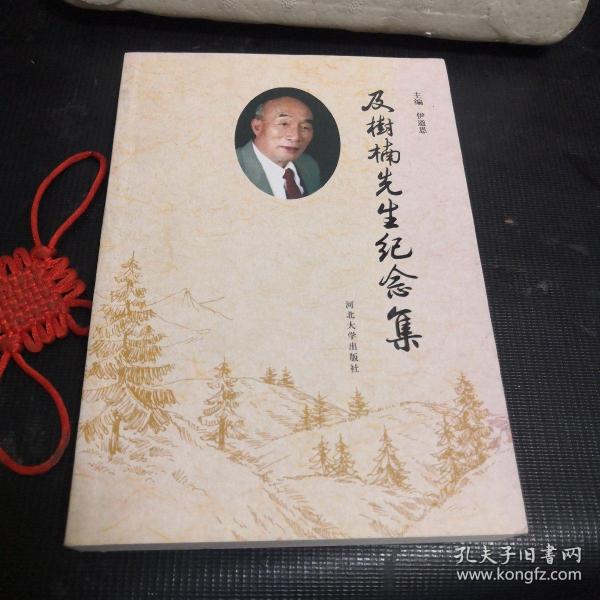 主编 伊道恩
及樹楠先生纪念集
河北大学出版社
孔夫子旧书网
www.kongfz.com